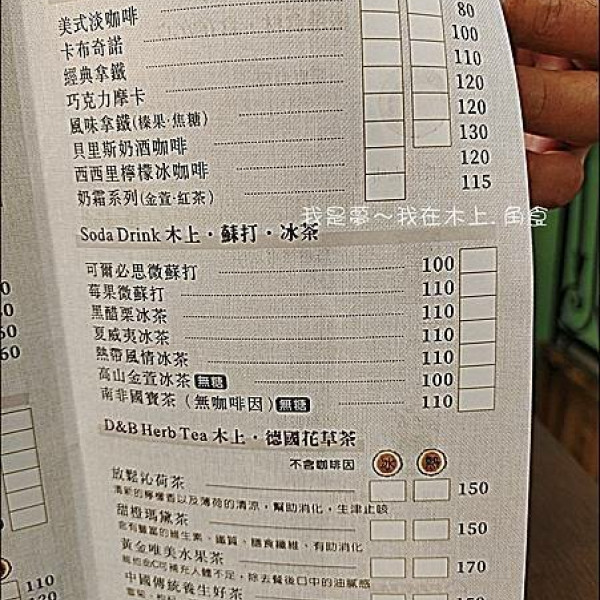 美式淡咖啡 80
卡布奇諾 100
經典拿鐵 110
巧克力摩卡 120
風味拿鐵(榛果·焦糖) 120
貝里斯奶酒咖啡 130
西西里檸檬冰咖啡 120
奶霜系列(金萱·紅茶) 115
我是夢～我在木上.角食
Soda Drink 木上·蘇打·冰茶
可爾必思微蘇打 100
莓果微蘇打 110
黑醋栗冰茶 110
夏威夷冰茶 110
熱帶風情冰茶 110
高山金萱冰茶 無糖 100
南非國寶茶(無咖啡因) 無糖 110
D&B Herb Tea 木上·德國花草茶
不含咖啡因 冰 熱
放鬆沁荷茶 150
清新的檸檬香以及薄荷的清涼,幫助消化,生津止咳
甜橙瑪黛茶 150
含有豐富的維生素、鐵質、膳食纖維、有助消化
黃金唯美水果茶 170
補充人體不足,除去餐後口中的油膩感
中國傳統養生好茶
60
60
110
120